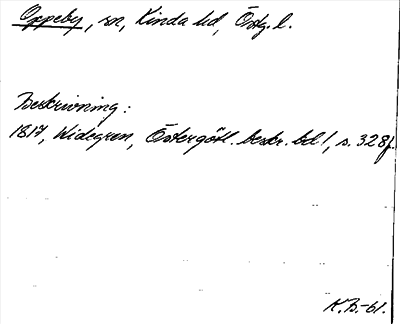 Oppeby, sn, Kinda hd, Östg. l.
Beskrivning:
1817, Widegren, Östergötl. beskr. bd 1, s. 328f.
K.B.-61.